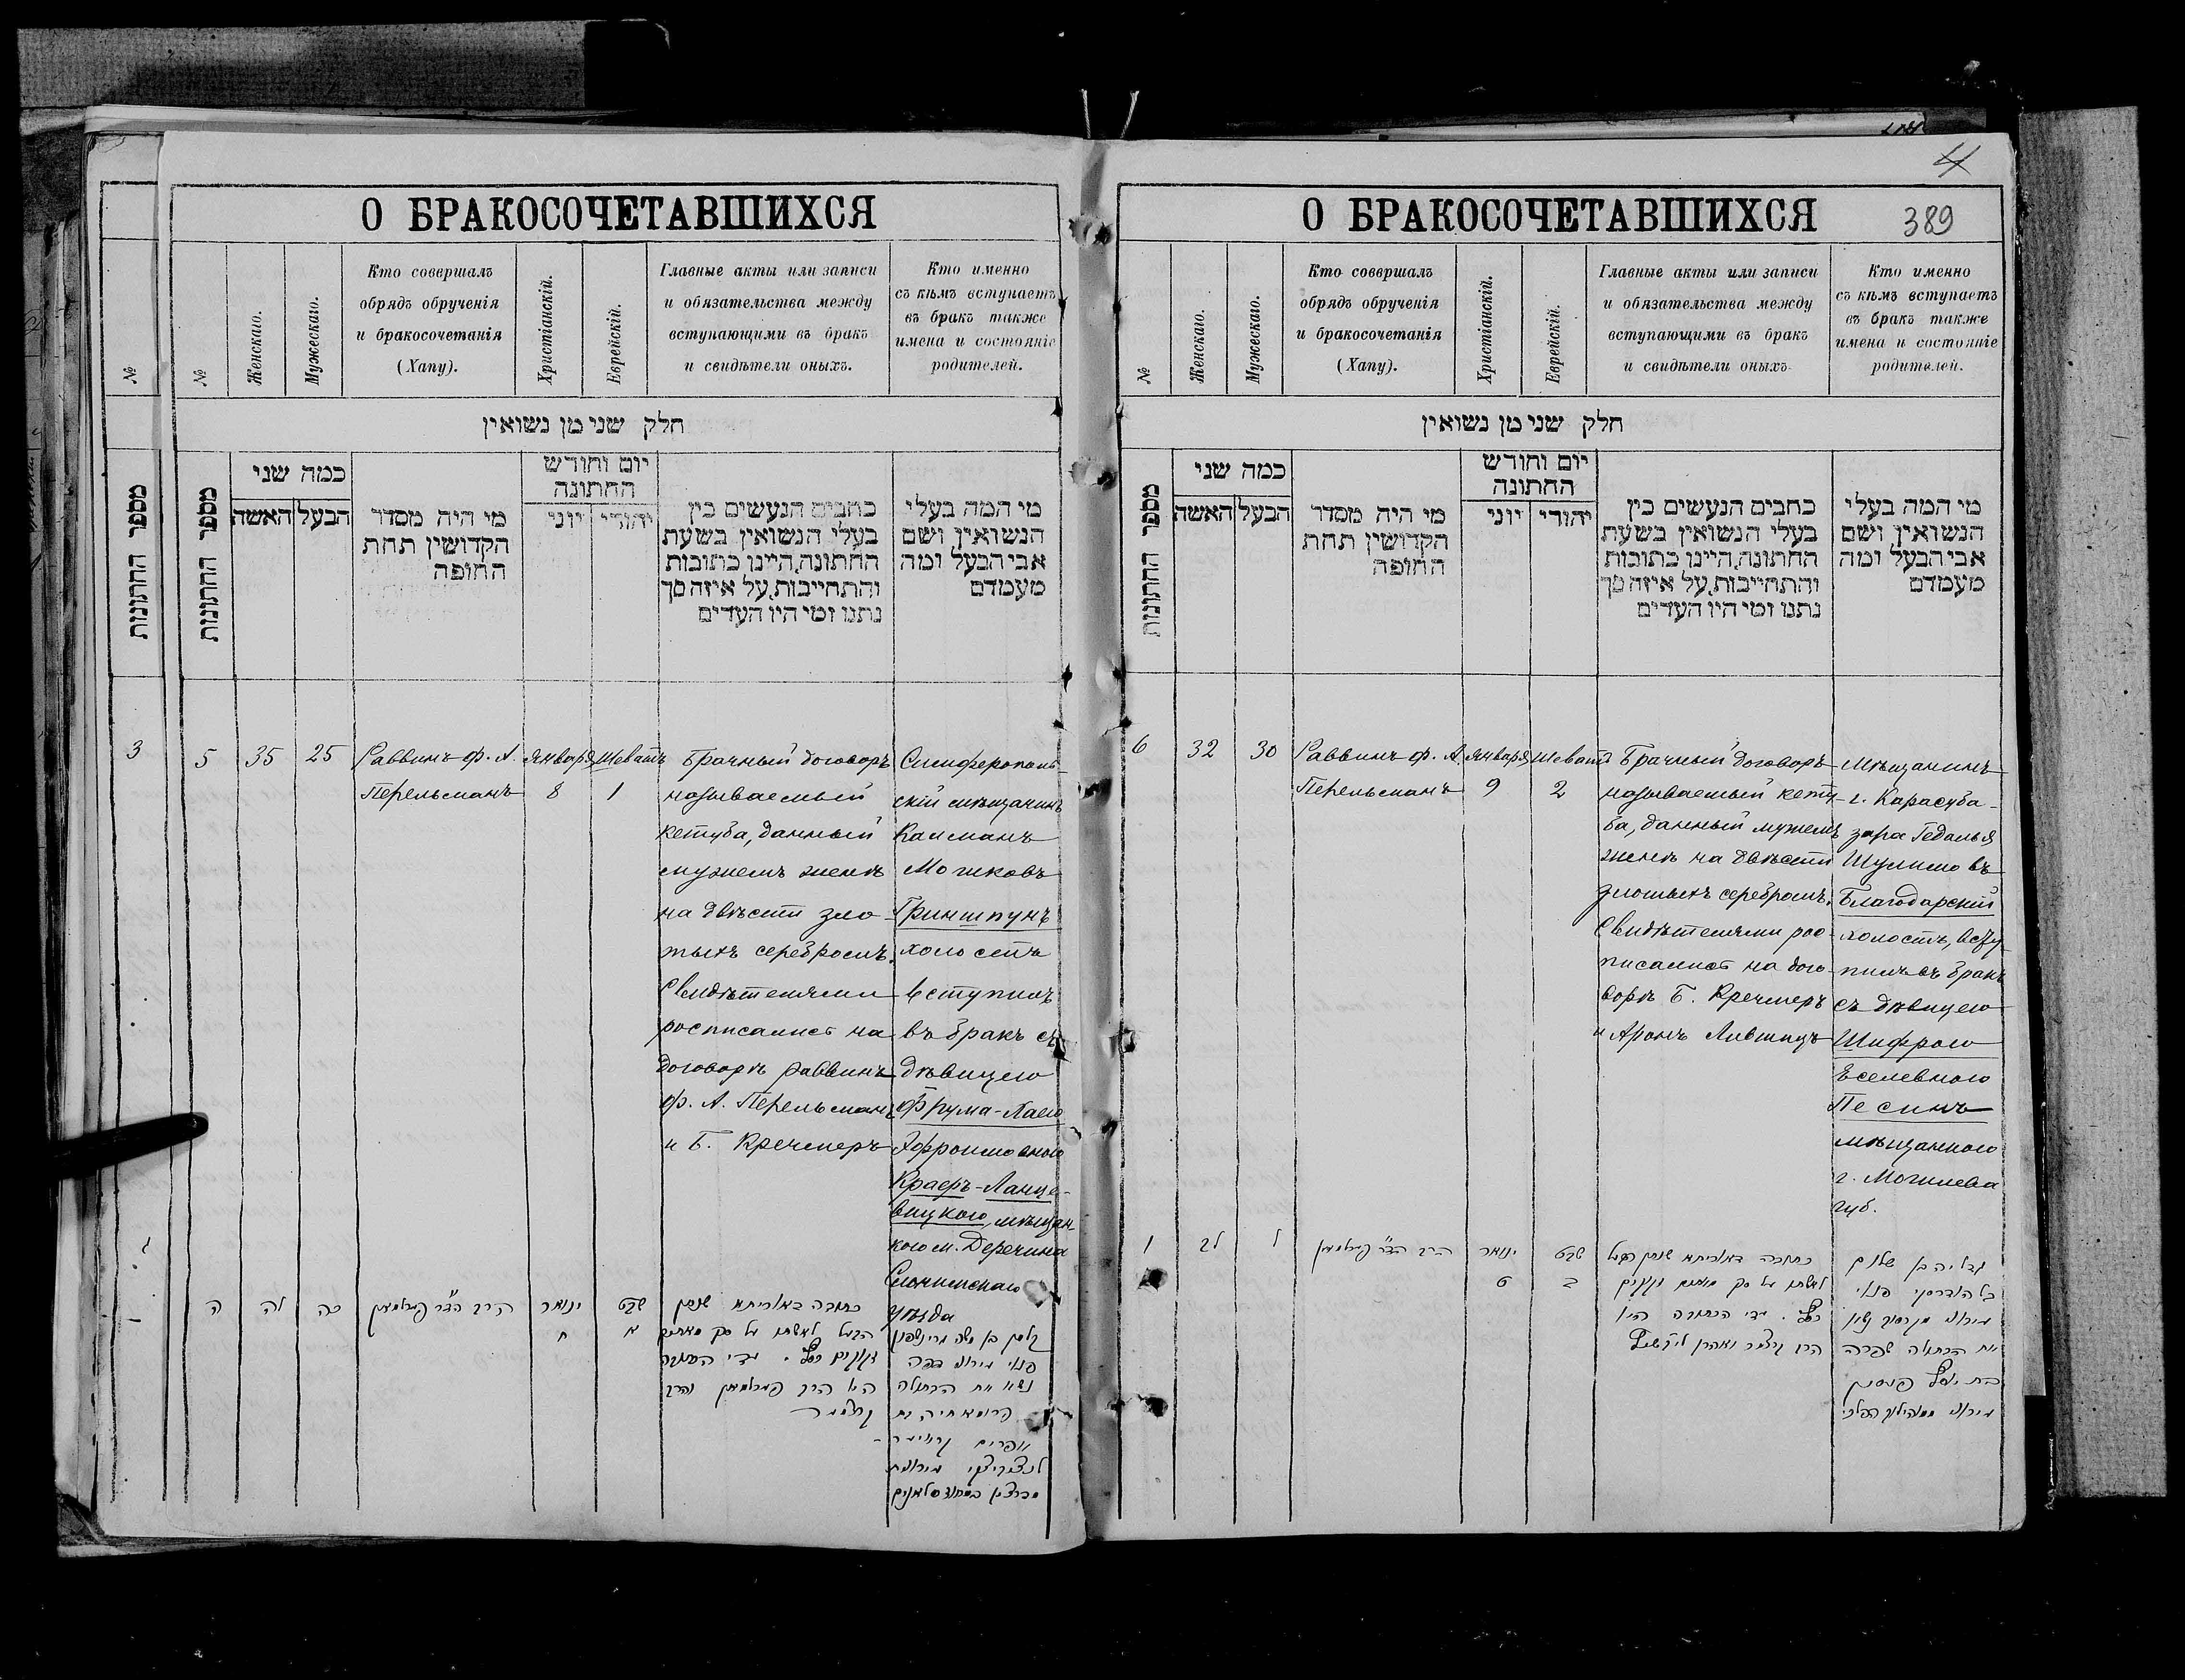 4
О БРАКОСОЧЕТАВШИХСЯ
№
№
Женскаго.
Мужескаго.
Кто совершалъ
обрядъ обрученія
и бракосочетанія
(Хапу).
Христіанскій.
Еврейскій.
Главные акты или записи
и обязательства между
вступающими въ бракъ
и свидѣтели оныхъ.
Кто именно
съ кѣмъ вступаетъ
въ бракъ также
имена и состояніе
родителей.
חלק שני מן נשואין
מספר החתונות
מספר החתונות
כמה שני
האשה
הבעל
מי היה מסדר
הקדושין תחת
החופה
יום וחודש
החתונה
יוני
יהודי
כתבים הנעשים בין
בעלי הנשואין בשעת
החתונה, היינו כתובות
והתחייבות, על איזה סך
נתנו ומי היו העדים
מי המה בעלי
הנשואין ושם
אבי הבעל ומה
מעמדם
3
5
35
25
Раввинъ ф. А.
Перельманъ
Января
8
Шеватъ
1
Брачный договоръ
называемый
кетуба, данный
мужемъ женѣ
на двѣсти зло-
тыхъ серебромъ.
Свидѣтелями
росписались на
договорѣ раввинъ
Ф. А. Перельманъ
и Б. Кречмеръ
Симферополь-
скій мѣщанинъ
Калманъ
Мошковъ
Гриншпунъ
холостъ
вступилъ
въ бракъ съ
дѣвицею
Фрума-Хаею
Эфроимовною
Краеръ-Ланце-
вицкою, мѣщан-
кою м. Деречина
Слонимскаго
уѣзда
ה
לה
כה
הרב הד"ר פערלמאן
ינואר
ח
שבט
א
כתובה דאוריתא שנתן
הבעל לאשתו על סך מאתים
זקוקים כסף. עדי הכתובה
היו הרב פערלמאן והרב
קרצמר
קלמן בן משה גרינשפון
פנוי
נשא את הבתולה
פרומא חיה בת
אפרים
О БРАКОСОЧЕТАВШИХСЯ
389
№
Женскаго.
Мужескаго.
Кто совершалъ
обрядъ обрученія
и бракосочетанія
(Хапу).
Христіанскій.
Еврейскій.
Главные акты или записи
и обязательства между
вступающими въ бракъ
и свидѣтели оныхъ.
Кто именно
съ кѣмъ вступаетъ
въ бракъ также
имена и состояніе
родителей.
חלק שני מן נשואין
מספר החתונות
כמה שני
האשה
הבעל
מי היה מסדר
הקדושין תחת
החופה
יום וחודש
החתונה
יוני
יהודי
כתבים הנעשים בין
בעלי הנשואין בשעת
החתונה, היינו כתובות
והתחייבות, על איזה סך
נתנו ומי היו העדים
מי המה בעלי
הנשואין ושם
אבי הבעל ומה
מעמדם
6
32
30
Раввинъ ф. А.
Перельманъ
Января
9
Шеватъ
2
Брачный договоръ
называемый кету-
ба, данный мужемъ
женѣ на двѣсти
злотыхъ серебромъ.
Свидѣтелями рос-
писались на дого-
ворѣ Б. Кречмеръ
и Аронъ Лившицъ
Мѣщанинъ
г. Карасуба-
зара Гедалья
Шулимовъ
Благодарскій
холостъ, всту-
пилъ въ бракъ
съ дѣвицею
Шифрою
Еселевною
Песинъ
мѣщанкою
г. Могилева
губ.
ו
לב
ל
הרב הד"ר פערלמאן
ינואר
ט
שבט
ב
כתובה דאוריתא שנתן הבעל
לאשתו על סך מאתים זקוקים
כסף. עדי הכתובה היו
הרב קרצמר ואהרן ליבשיץ
גדליה בן שלום
פנוי
את הבתולה שפרה
בת יוסף פעסין